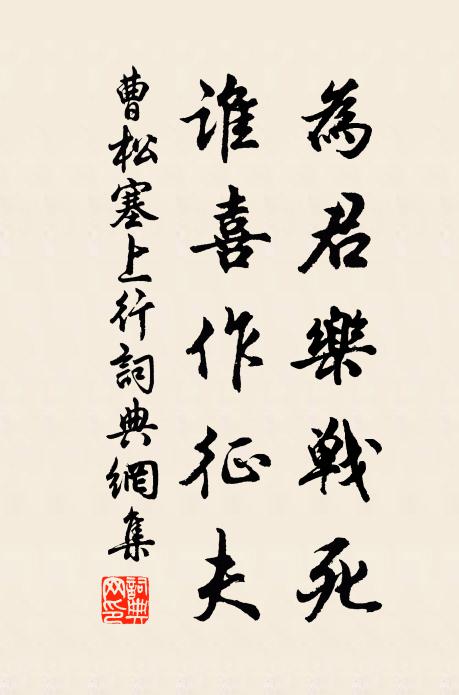 為君樂戰死
誰喜作征夫
曹松塞上行詞典網集
詞典网印